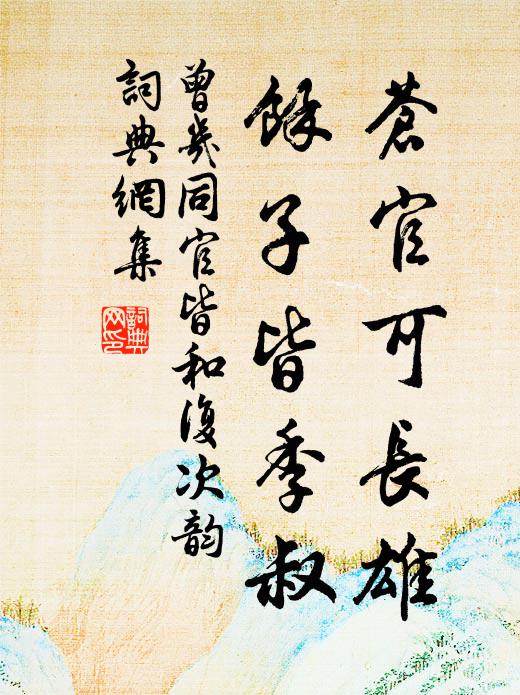 蒼官可長雄
餘子皆季叔
曾幾同官皆和復次韵
詞典網集
詞典
网印